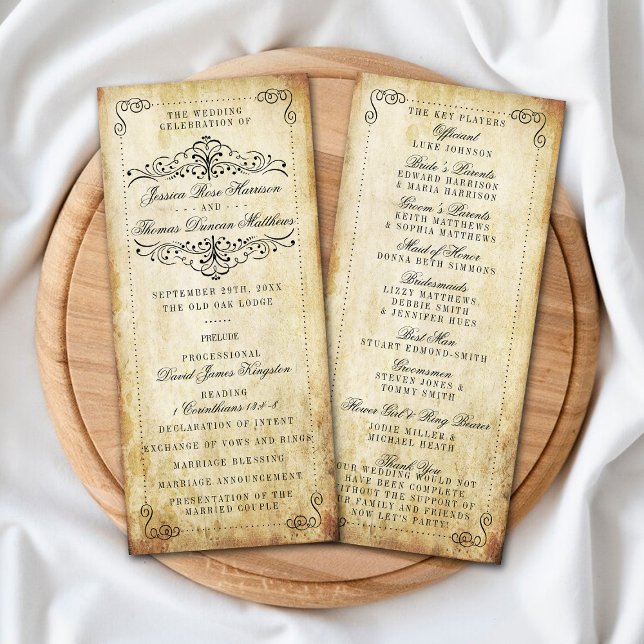 THE WEDDING
CELEBRATION OF
Jessica Rose Harrison
- AND -
Thomas Duncan Matthews
SEPTEMBER 29TH, 20XX
THE OLD OAK LODGE
PRELUDE
PROCESSIONAL
David James Kingston
READING
1 Corinthians 13:4-8
DECLARATION OF INTENT
EXCHANGE OF VOWS AND RINGS
MARRIAGE BLESSING
MARRIAGE ANNOUNCEMENT
PRESENTATION OF THE
MARRIED COUPLE
THE KEY PLAYERS
Officiant
LUKE JOHNSON
Bride's Parents
EDWARD HARRISON
& MARIA HARRISON
Groom's Parents
KEITH MATTHEWS
& SOPHIA MATTHEWS
Maid of Honor
DONNA BETH SIMMONS
Bridesmaids
LIZZY MATTHEWS
DEBBIE SMITH
& JENNIFER HUES
Best Man
STUART EDMOND-SMITH
Groomsmen
STEVEN JONES &
TOMMY SMITH
Flower Girl & Ring Bearer
JODIE MILLER &
MICHAEL HEATH
Thank You
OUR WEDDING WOULD NOT
HAVE BEEN COMPLETE
WITHOUT THE SUPPORT OF
OUR FAMILY AND FRIENDS
NOW LET'S PARTY!